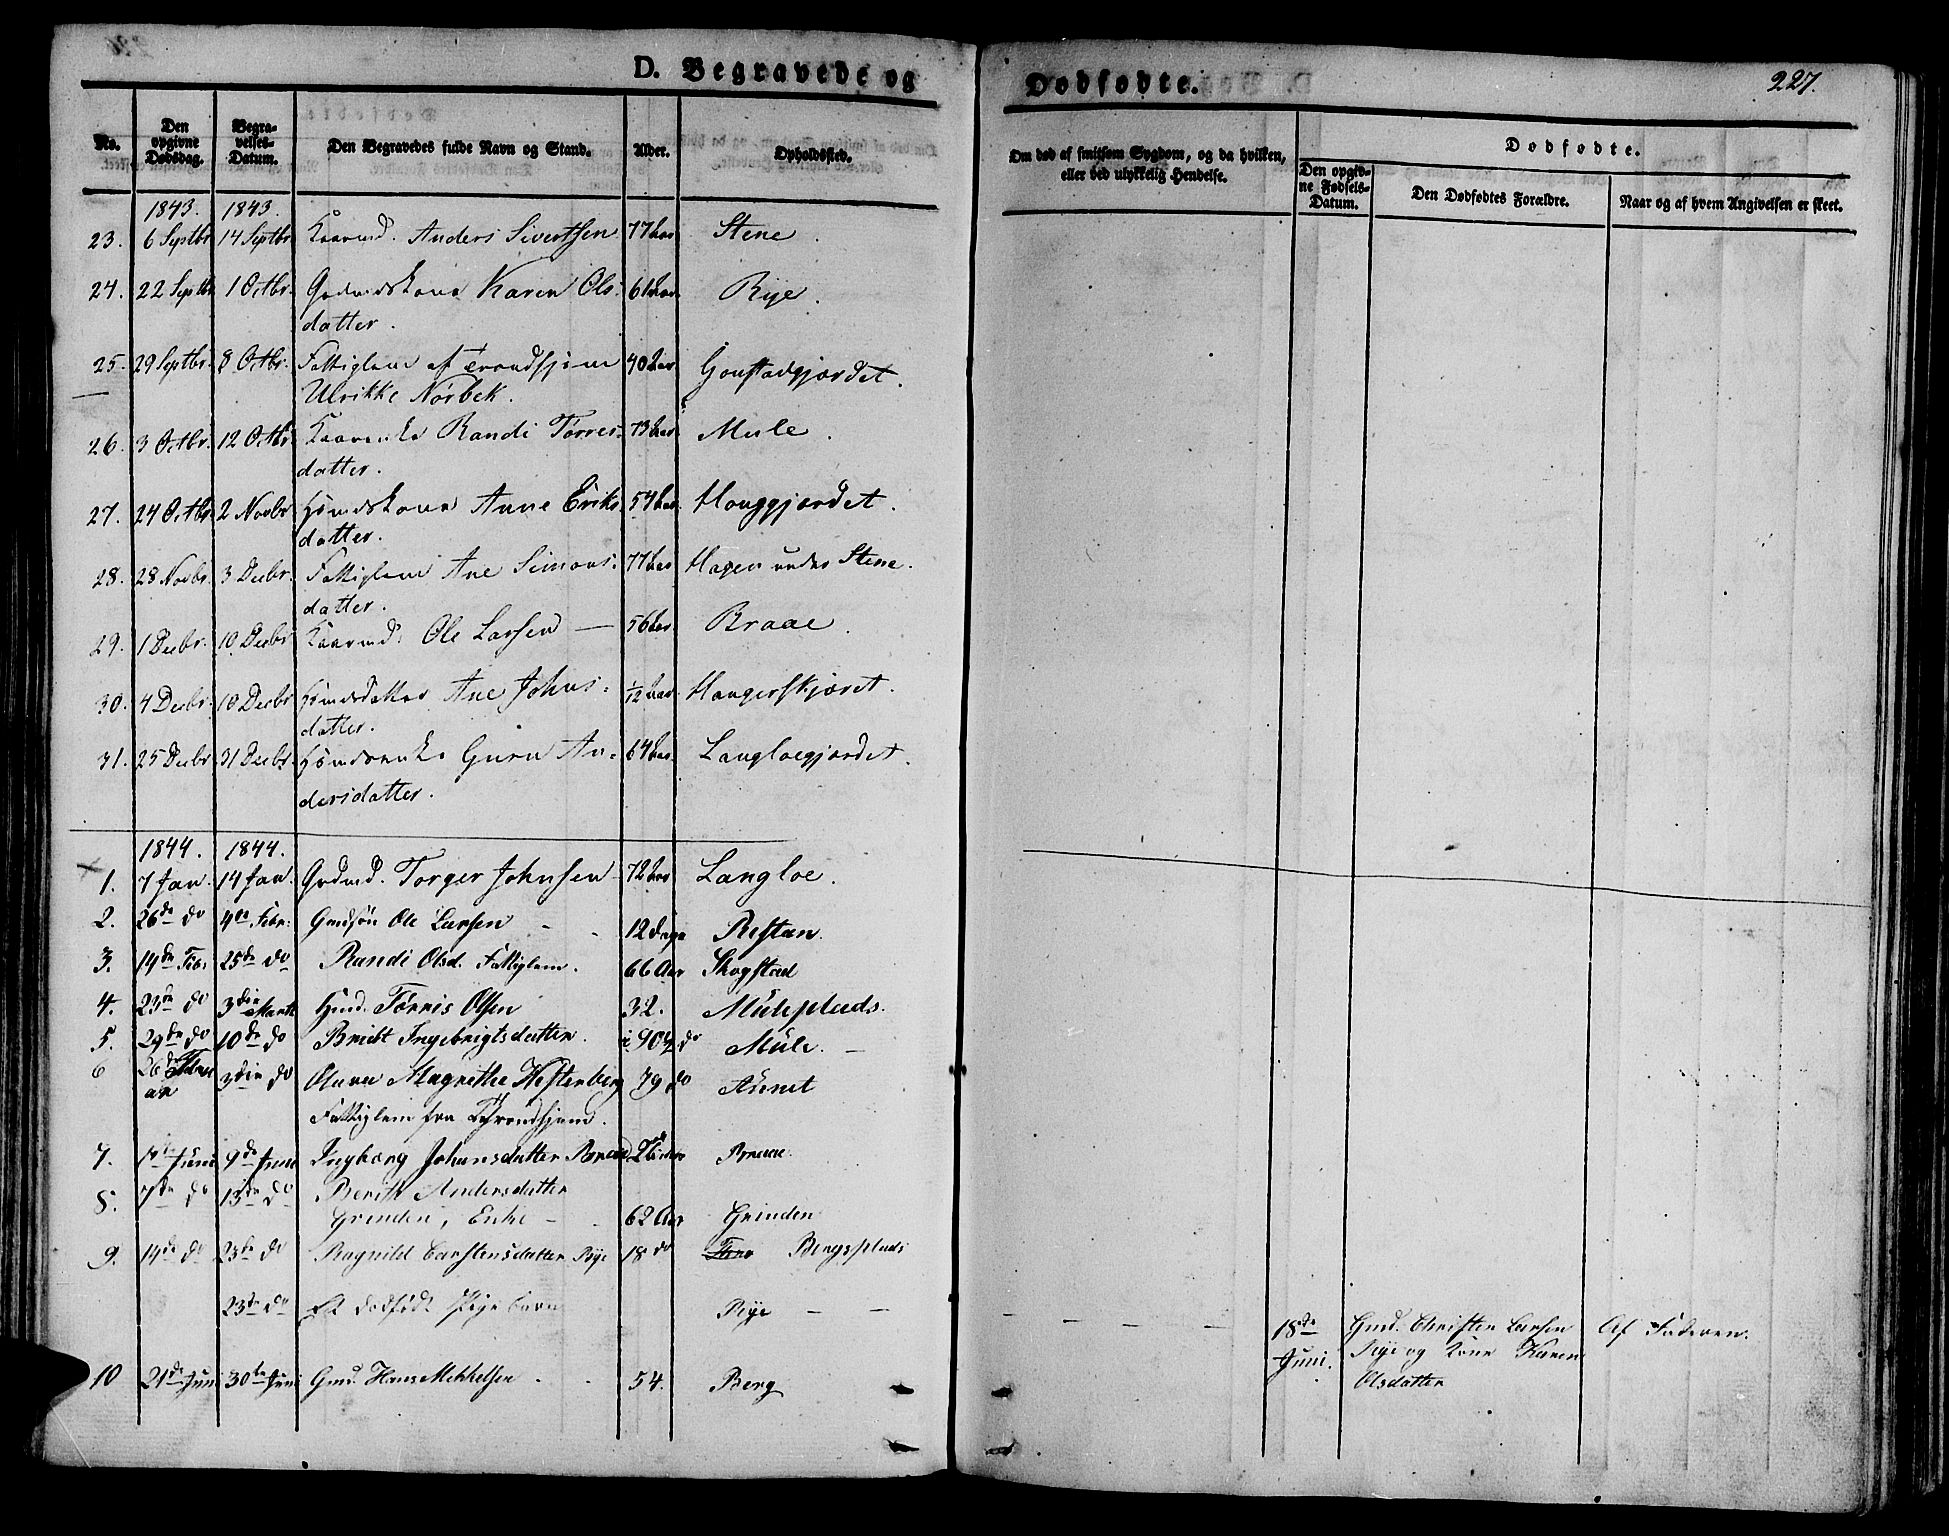 D. Begravede og Dødfødte.
227.
No.
Den opgivne Dødsdag.
Begravelses-Datum.
Den Begravedes fulde Navn og Stand.
Alder.
Opholdssted.
Om død af smitsom Sygdom, og da hvilken, eller ved ulykkelig Hendelse.
Dødfødte.
Den opgivne Fødsels-Datum.
Den Dødfødtes Forældre.
Naar og af hvem Angivelsen er skeet.
1843. 1843.
23. 6 Septbr 14 Septbr Kaarmd. Anders Sivertsen 77 Aar Stene.
24. 22 Septbr 1 Octbr. Gaardmdskone Karen Ols- 61 Aar Rye.
datter.
25. 29 Septbr. 8 Octbr. Fattiglem af Trondhjem 40 Aar
Ulrikke Nørbek.
26. 3 Octbr. 12 Octbr Kaarenke Randi Tørres- 73 Aar Mule.
datter.
27. 24 Octbr. 2 Novbr Hsmdskone Anne Eriks 54 Aar. Houggjærdet.
datter.
28. 28 Novbr. 3 Decbr. Fattiglem Ane Simons- 77 Aar Hagen under Stene.
datter.
29. 1 Decbr. 10 Decbr Kaarmd. Ole Larsen — 56 Aar. Braae.
30. 4 Decbr. 10 Decbr Hsmdsdatter Ane Johns- 1/12 Aar. Haugerskjæret.
datter.
31. 25 Decbr 31 Decbr. Hsmdsenke Guru An- 64 Aar. Langloegjærdet.
dersdatter.
1844. 1844.
1. 7 Jan. 14 Jan. Grdmd. Torger Johnsen 72 Aar Langloe.
2. 26de do 4de Febr. Gmdsøn Ole Larsen - - 12 Dage Restan.
3. 19de Febr. 25de do Randi Olsd. Fattiglem. 66 Aar Skogstad
4. 23de do 3die Marts Hmd. Tørris Olsen 32. Muleplads.
5. 29de do 10de do Briet Ingebrigtsdatter. 90 do Mule. —
6 26de 3die do Olava Magrethe Hestenberg 79 do
Fattiglem fra Throndhjem.
7. Juni 9de Juni Ingborg Johansdatter Braae
8. 7de do 13de do Berith Andersdatter
Grinden, Enke - - 62 Aar Grinden
9. 14de do 23de do Ragnild Carstensdatter Rye 18 do Bergsplads
23de do Et dødfødt Pigebarn Rye — —
18de Juni. Gmd. Christen Larsen Rye og Kone Karen Olsdatter Af Faderen.
10 21de Juni 30te Juni Gmd. Hans Mikkelsen - - 54. Berg